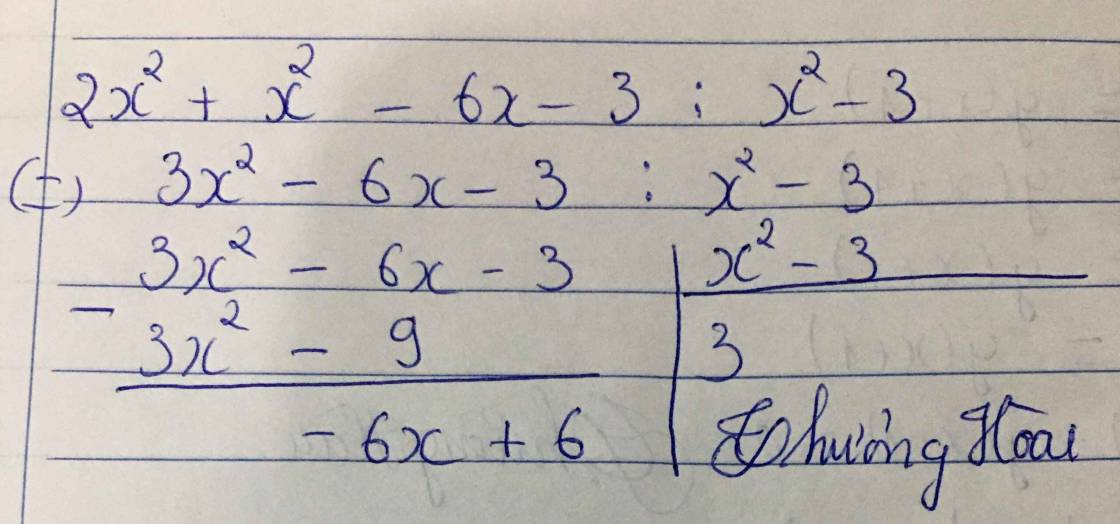 2x² + x² - 6x - 3 : x² - 3
(=) 3x² - 6x - 3 : x² - 3
3x² - 6x - 3 | x² - 3
- 3x² - 9 | 3
- 6x + 6 | Phương Hoài